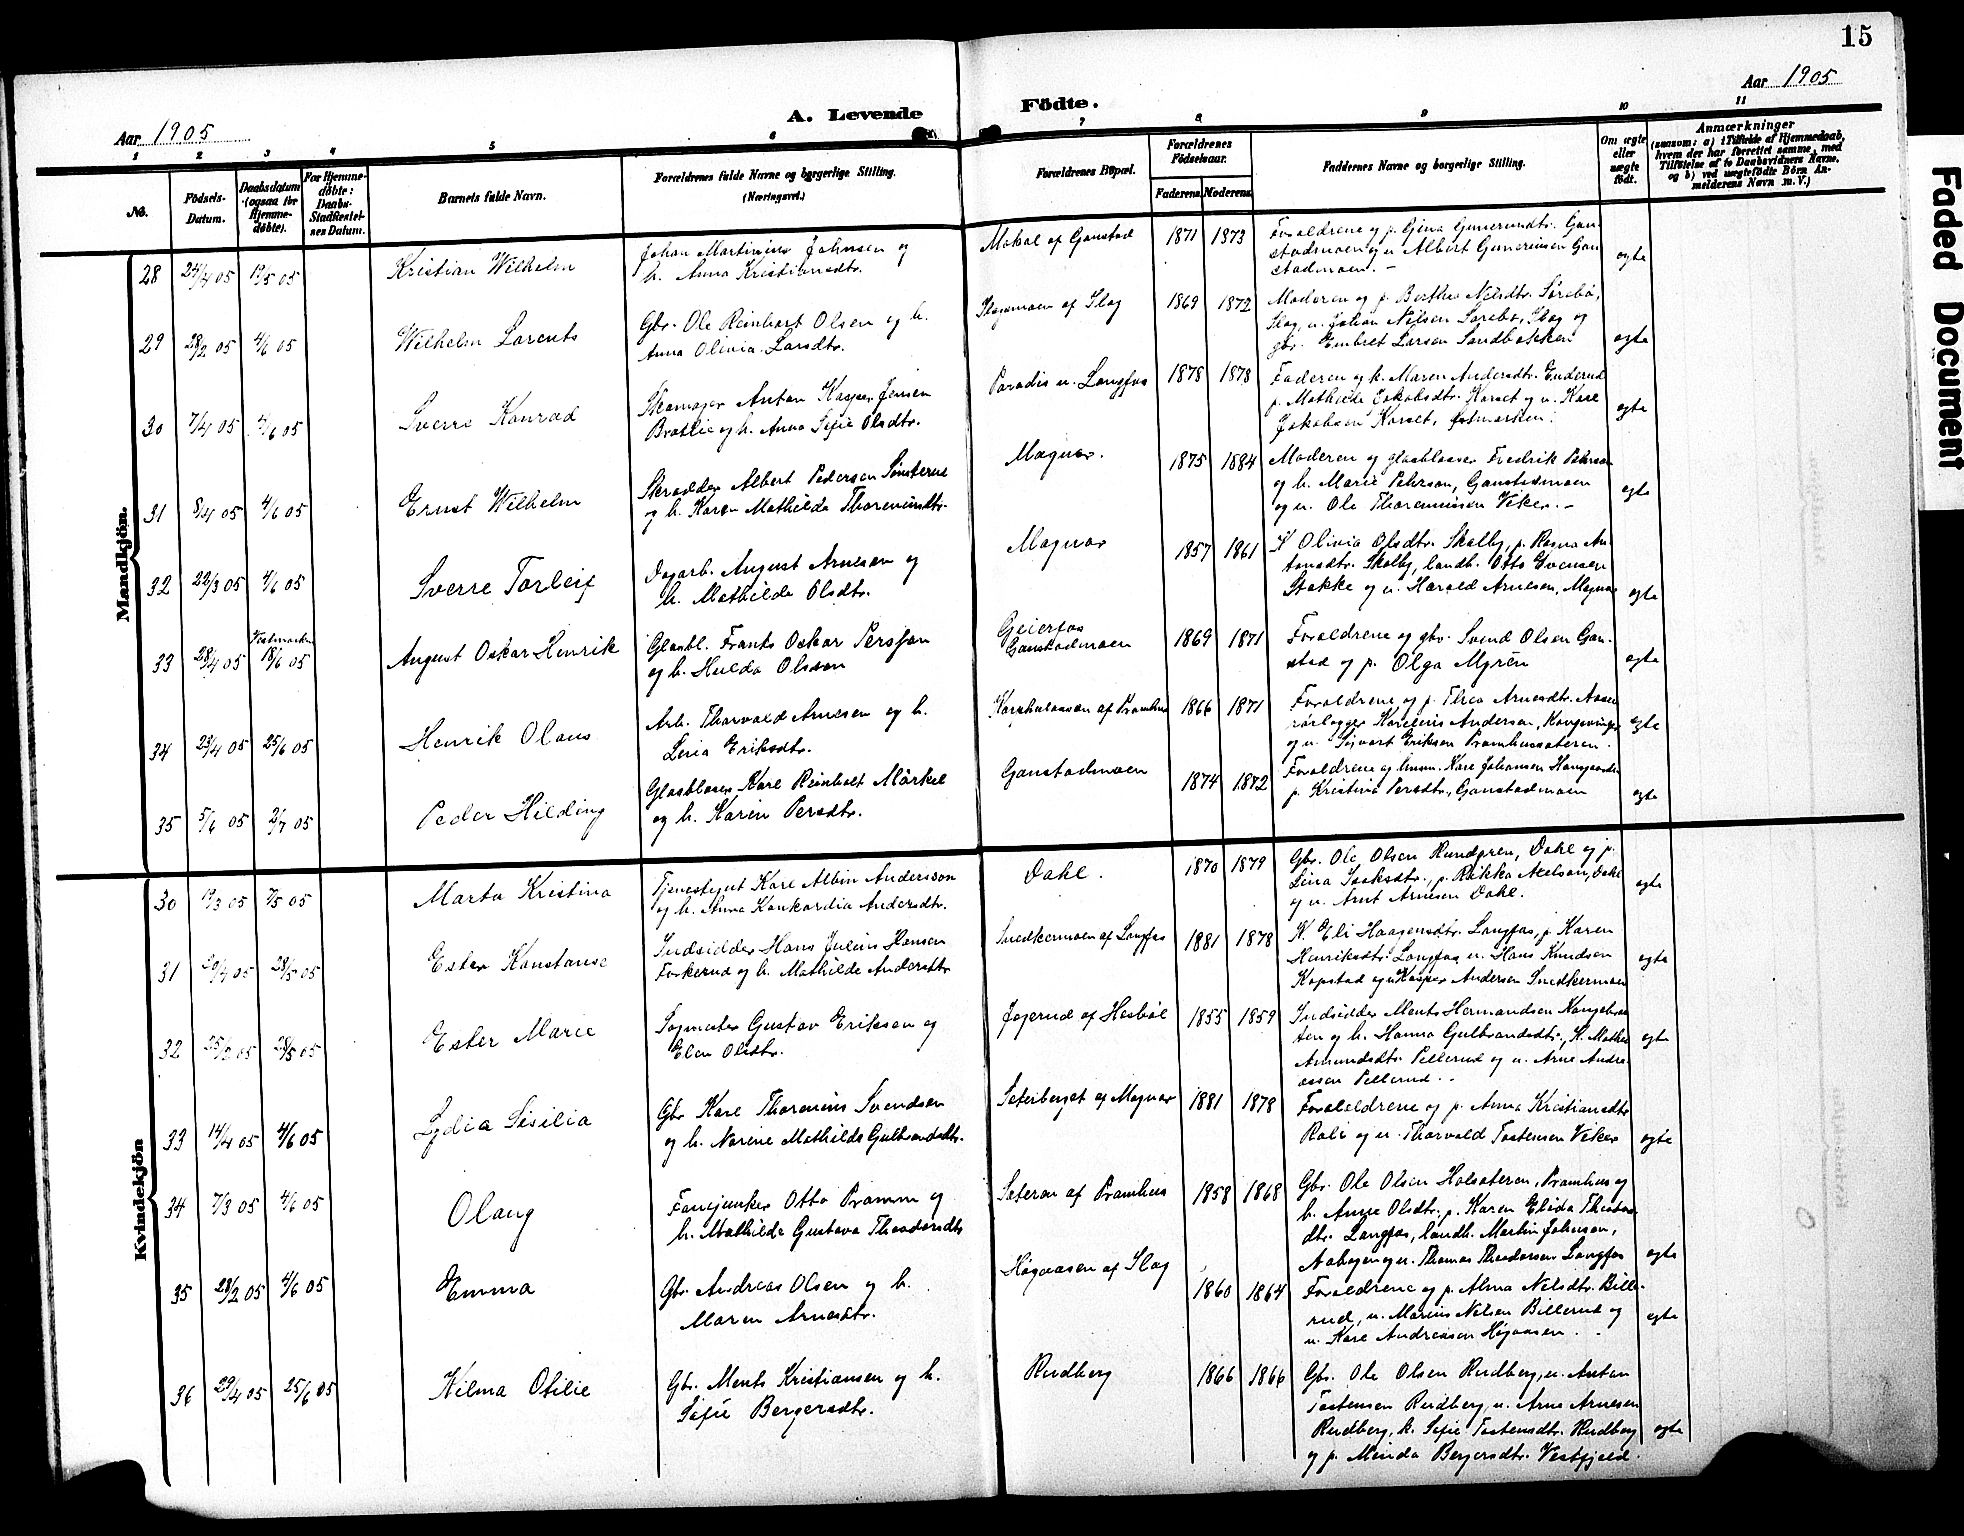 15
Aar 1905
A. Levende Födte.
Aar 1905
1 2 3 4 5 6 7 8 9 10 11
No.
Födsels-Datum.
Daabsdatum (ogsaa for Hjemmedöbte).
For Hjemmedöbte: Daabs-Stadfæstelsens Datum.
Barnets fulde Navn.
Forældrenes fulde Navne og borgerlige Stilling. (Næringsvei.)
Forældrenes Bopæl.
Forældrenes Födselsaar.
Faderens. Moderens.
Faddernes Navne og borgerlige Stilling.
Om ægte eller uægte födt.
Anmærkninger
(saasom: a) i Tilfælde af Hjemmedaab, hvem der har forrettet samme, med Tilföielse af to Daabsvidners Navne, og b) ved uægtefödte Börn Anmelderens Navn m. V.)
Mandkjön.
28 24/4 05 19/5 05 Kristian Wilhelm
Johan Martinius Johnsen og
h. Anna Kristiansdtr.
Mokal af Gaustad 1871 1873
Forældrene og p. Gina Guneriusdtr. Gau-
stadmoen og u. Albert Guneriusen Gau
stadmoen. — ægte
29 28/2 05 4/6 05 Wilhelm Lorents
Gbr. Ole Reinhart Olsen og h.
Anna Olivia Larsdtr.
Slogsmoen af Slog 1869 1872
Moderen og p. Berthe Nilsdtr. Sörebö,
Slog, u. Johan Nilsen Sörebö, Slog og
gbr. Embret Larsen Sandbakken ægte
30 7/4 05 4/6 05 Sverre Konrad
Skomager Anton Kasper Jensen
Bratlie og h. Anna Sofie Olsdtr.
Paradis u. Langfos 1878 1878
Faderen og k. Maren Andersdtr. Enderud
p. Mathilde Jakobsdtr. Karset og u. Karl
Jakobsen Karset, Östmarken. ægte
31 8/4 05 4/6 05 Ernst Wilhelm
Skrædder Albert Pedersen Sönsterud
og h. Karen Mathilde Thoreniusdtr.
Magnor. 1875 1884
Moderen og glasblaaser Fredrik Peterson
og h. Marie Peterson, Gaustadmoen
og u. Ole Thoreniusen Veker. — ægte
32 22/3 05 4/6 05 Sverre Torleif
Dagarb. August Arnesen og
h. Mathilde Olsdtr.
Magnor 1857 1861
K Olivia Olsdtr. Skolby, p. Ragna An-
tonsdtr. Skolby, landh. Otto Svensen
Stokke og u. Harald Arnesen, Magnor ægte
33 28/4 05 Vestmarken 18/6 05 August Oskar Henrik
Glasbl. Frants Oskar Persson
og h. Hulda Olsson
Geierfos
Gaustadmoen 1869 1871
Forældrene og gbr. Svend Olsen Gau-
stad og p. Olga Myrén ægte
34 23/4 05 25/6 05 Henrik Olaus
Arb. Thorvald Arnesen og h.
Lina Eriksdtr.
Karphulaasen af Pramhus 1866 1871
Forældrene og p. Thea Arnesdtr. Aasen
rörlægger Karelius Andersen, Kongsvinger
og u. Sigvart Eriksen Pramhussæteren. ægte
35 5/6 05 2/7 05 Peder Hilding
Glasblaaser Karl Reinholt Mörkel
og h. Karin Persdtr.
Gaustadmoen 1874 1872
Forældrene og Karl Johansen
p. Kristina Persdtr., Gaustadmoen ægte
Kvindekjön
30 19/3 05 7/5 05 Marta Kristina
Tjenestegut Karl Albin Andersson
og h. Anna Konkordia Andersdtr.
Dahl. 1870 1879
Gbr. Ole Olsen Rundgren, Dahl og p.
Lina Isaksdtr., p. Rikka Axelson, Dahl
og u. Arnt Arnesen Dahl. ægte
31 20/4 05 28/5 05 Ester Konstanse
Indsidder Hans Julius Hansen
Forkerud og h. Mathilde Andersdtr.
Snedkermoen af Langfos 1881 1878
K. Eli Haagensdtr. Langfos, p. Karen
Henriksdtr. Langfos u. Hans Knudsen
Kopstad og u. Kasper Andersen Snedkermoen ægte
32 25/3 05 28/5 05 Ester Marie
Sagmester Gustav Eriksen og
Elen Olsdtr.
Jogerud af Hesböl 1855 1859
Indsidder Ments Hermandsen Kongebraa-
ten og h. Hanna Gulbrandsdtr., K. Mathea
Amundsdtr. Pellerud og u. Arne Andre-
assen Pellerud. . ægte
33 14/4 05 4/6 05 Lydia Sisilia
Gbr. Karl Thorenius Svendsen
og h. Norine Mathilde Gulbrandsdtr.
Sæterberget af Magnor 1881 1878
Forældrene og p. Anna Kristiansdtr.
Roli og u. Thorvald Tostensen Veker ægte
34 7/3 05 4/6 05 Olaug
Fanejunker Otto Pramm og
h. Mathilde Gustava Theodorsdtr.
Sæteren af Pramhus 1858 1868
Gbr. Ole Olsen Holsæteren, Pramhus og
h. Anne Olsdtr., p. Karen Elida Theodors-
dtr. Langfos, landh. Martin Johnsen,
Aabogen og u. Thomas Theodorsen Langfos ægte
35 28/2 05 4/6 05 Emma
Gbr. Andreas Olsen og h.
Maren Arnesdtr.
Högaasen af Slog 1860 1864
Forældrene og p. Alma Nilsdtr. Bille-
rud, u. Marius Nilsen Billerud og
u. Karl Andreasen Högaasen. . ægte
36 29/4 05 25/6 05 Wilma Otilie
Gbr. Ments Kristiansen og h.
Sofie Bergersdtr.
Rudberg 1866 1866
Gbr. Ole Olsen Rudberg, u. Anton
Tostensen Rudberg, u. Arne Arnesen
Rudberg, k. Sofie Tostensdtr. Rudberg
og p. Minda Bergersdtr. Vestfjeld. ægte
Faded Document